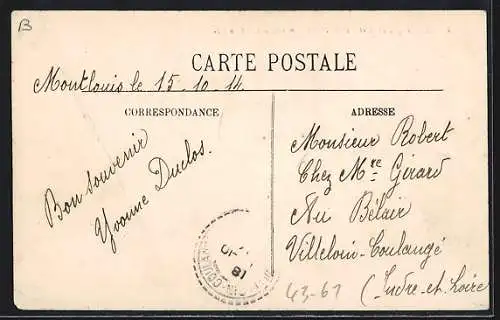 B
CARTE POSTALE
Montlouis le 15-10-14
CORRESPONDANCE
ADRESSE
Bon souvenir
Yvonne Duclos.
Monsieur Robert
Chez Mre Girard
Au Bélair
Villeloin-Coulangé
(Indre-et-Loire
43-67